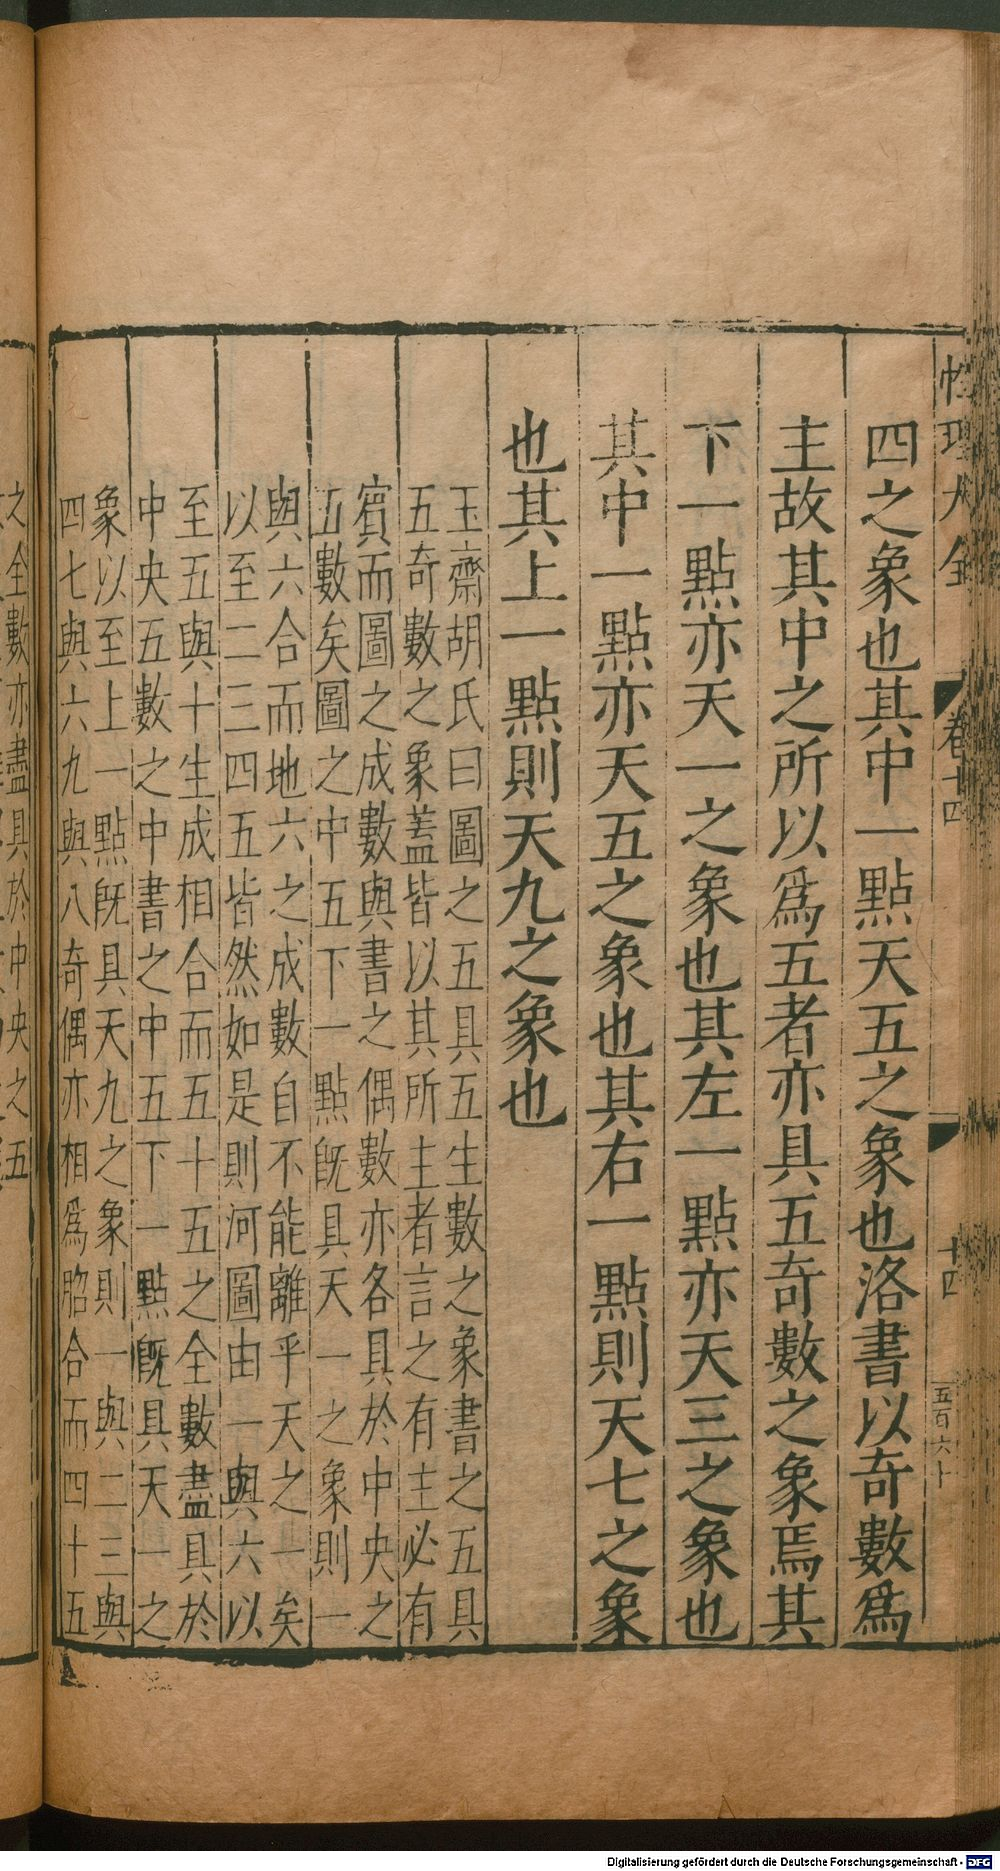 性理大全 卷十四 十四 五百六十
四之象也其中一點天五之象也洛書以奇數爲
主故其中之所以爲五者亦具五奇數之象焉其
下一點亦天一之象也其左一點亦天三之象也
其中一點亦天五之象也其右一點則天七之象
也其上一點則天九之象也
玉齋胡氏曰圖之五具五生數之象書之五具
五奇數之象蓋皆以其所主者言之有主必有
賓而圖之成數與書之偶數亦各具於中央之
五數矣圖之中五下一點旣具天一之象則一
與六合而地六之成數自不能離乎天之一矣
以至二三四五皆然如是則河圖由一與六以
至五與十生成相合而五十五之全數盡具於
中央五數之中書之中五下一點旣具天一之
象以至上一點旣具天九之象則一與二三與
四七與六九與八奇偶亦相爲脗合而四十五
之全數亦盡具於中央之五
Digitalisierung gefördert durch die Deutsche Forschungsgemeinschaft - DFG